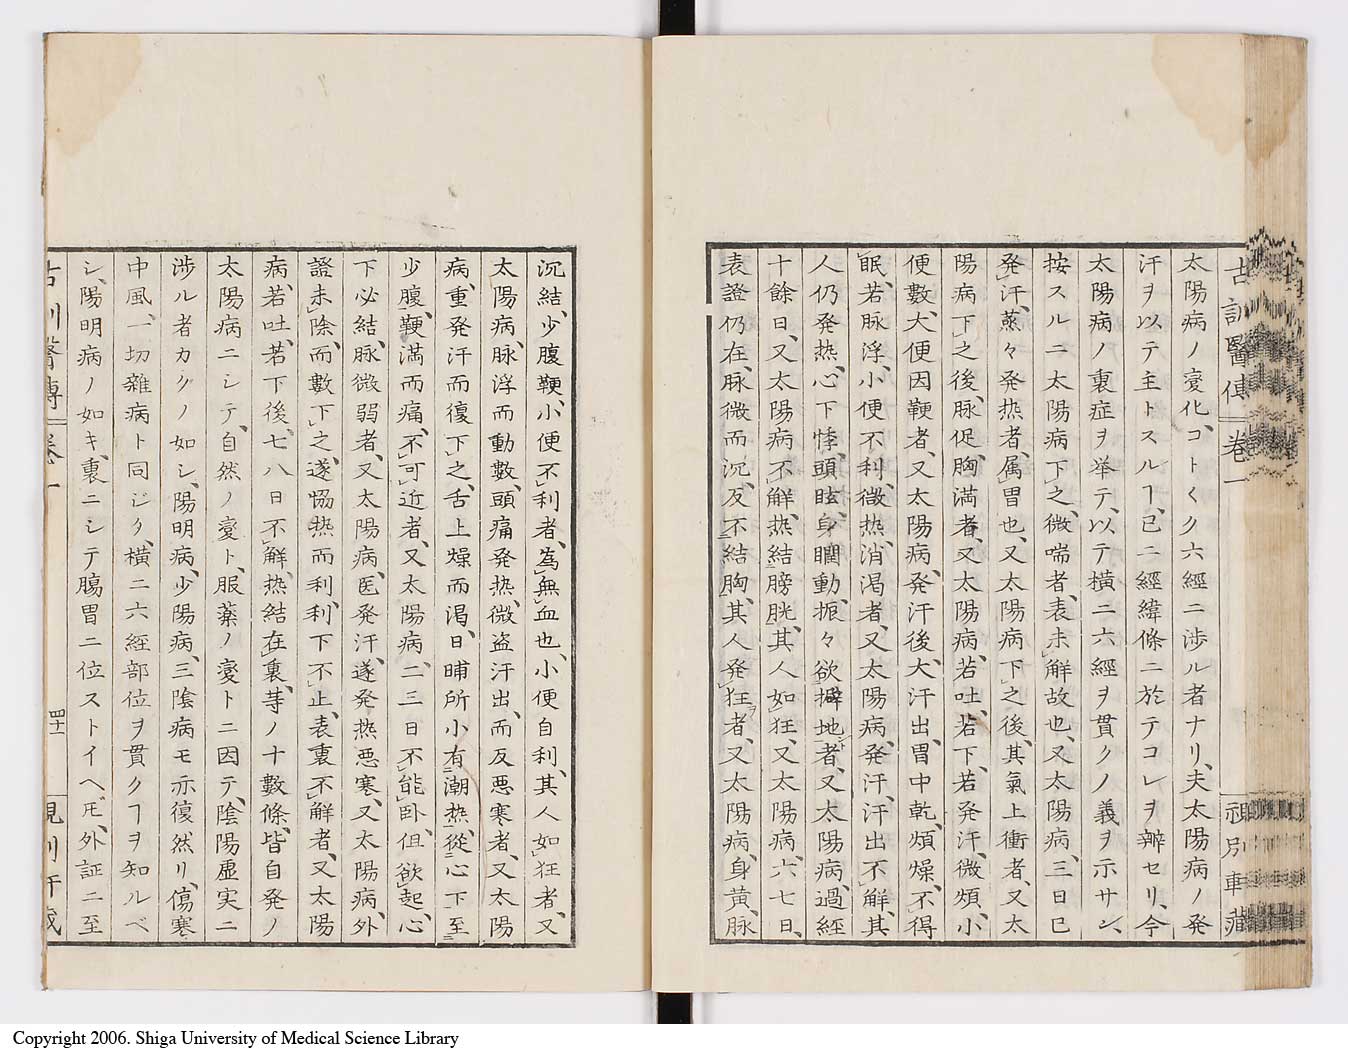 古訓醫傳 卷一 視別軒藏
太陽病ノ変化、コトく〱ク六經ニ渉ル者ナリ、夫太陽病ノ発
汗ヲ以テ主トスルヿ、已ニ經緯條ニ於テコレヲ辨セリ、今
太陽病ノ裏症ヲ挙テ、以テ横ニ六經ヲ貫クノ義ヲ示サン、
按スルニ太陽病下之、微喘者、表未解故也、又太陽病、三日已
発汗、蒸々発热者、属胃也、又太陽病下之後、其氣上衝者、又太
陽病下之後、脉促、胸満者、又太陽病、若吐、若下、若発汗、微煩、小
便數、大便因鞕者、又太陽病、発汗後、大汗出、胃中乾、煩燥、不得
眠、若脉浮、小便不利、微热、消渇者、又太陽病、発汗、汗出不解、其
人仍発热、心下悸、頭眩、身瞤動、振々欲擗地者、又太陽病、過經
十餘日、又太陽病不解、热結膀胱、其人如狂、又太陽病、六七日、
表證仍在、脉微而沉、反不結胸、其人発狂者、又太陽病、身黄、脉
沉結、少腹鞕、小便不利者、為無血也、小便自利、其人如狂者、又
太陽病、脉浮而動數、頭痛発热、微盗汗出、而反悪寒者、又太陽
病、重発汗而復下之、舌上燥而渇、日晡所小有潮热、從心下至
少腹、鞕満而痛、不可近者、又太陽病、二三日、不能卧、伹欲起、心
下必結、脉微弱者、又太陽病、医発汗、遂発热悪寒、又太陽病、外
證未除、而數下之、遂恊热而利、利下不止、表裏不解者、又太陽
病、若吐、若下後、七八日不解、热結在裏、䓁ノ十數條、皆自発ノ
太陽病ニシテ、自然ノ変ト、服薬ノ変トニ因テ、陰陽虚実ニ
渉ル者カクノ如シ、陽明病、少陽病、三陰病モ亦復然リ、傷寒
中風、一切雜病ト同ジク、横ニ六經部位ヲ貫クヿヲ知ルベ
シ、陽明病ノ如キ、裏ニシテ腸胃ニ位ストイヘ𪜈、外証ニ至
古訓醫傳 卷一 四十一 視別軒藏
Copyright 2006. Shiga University of Medical Science Library